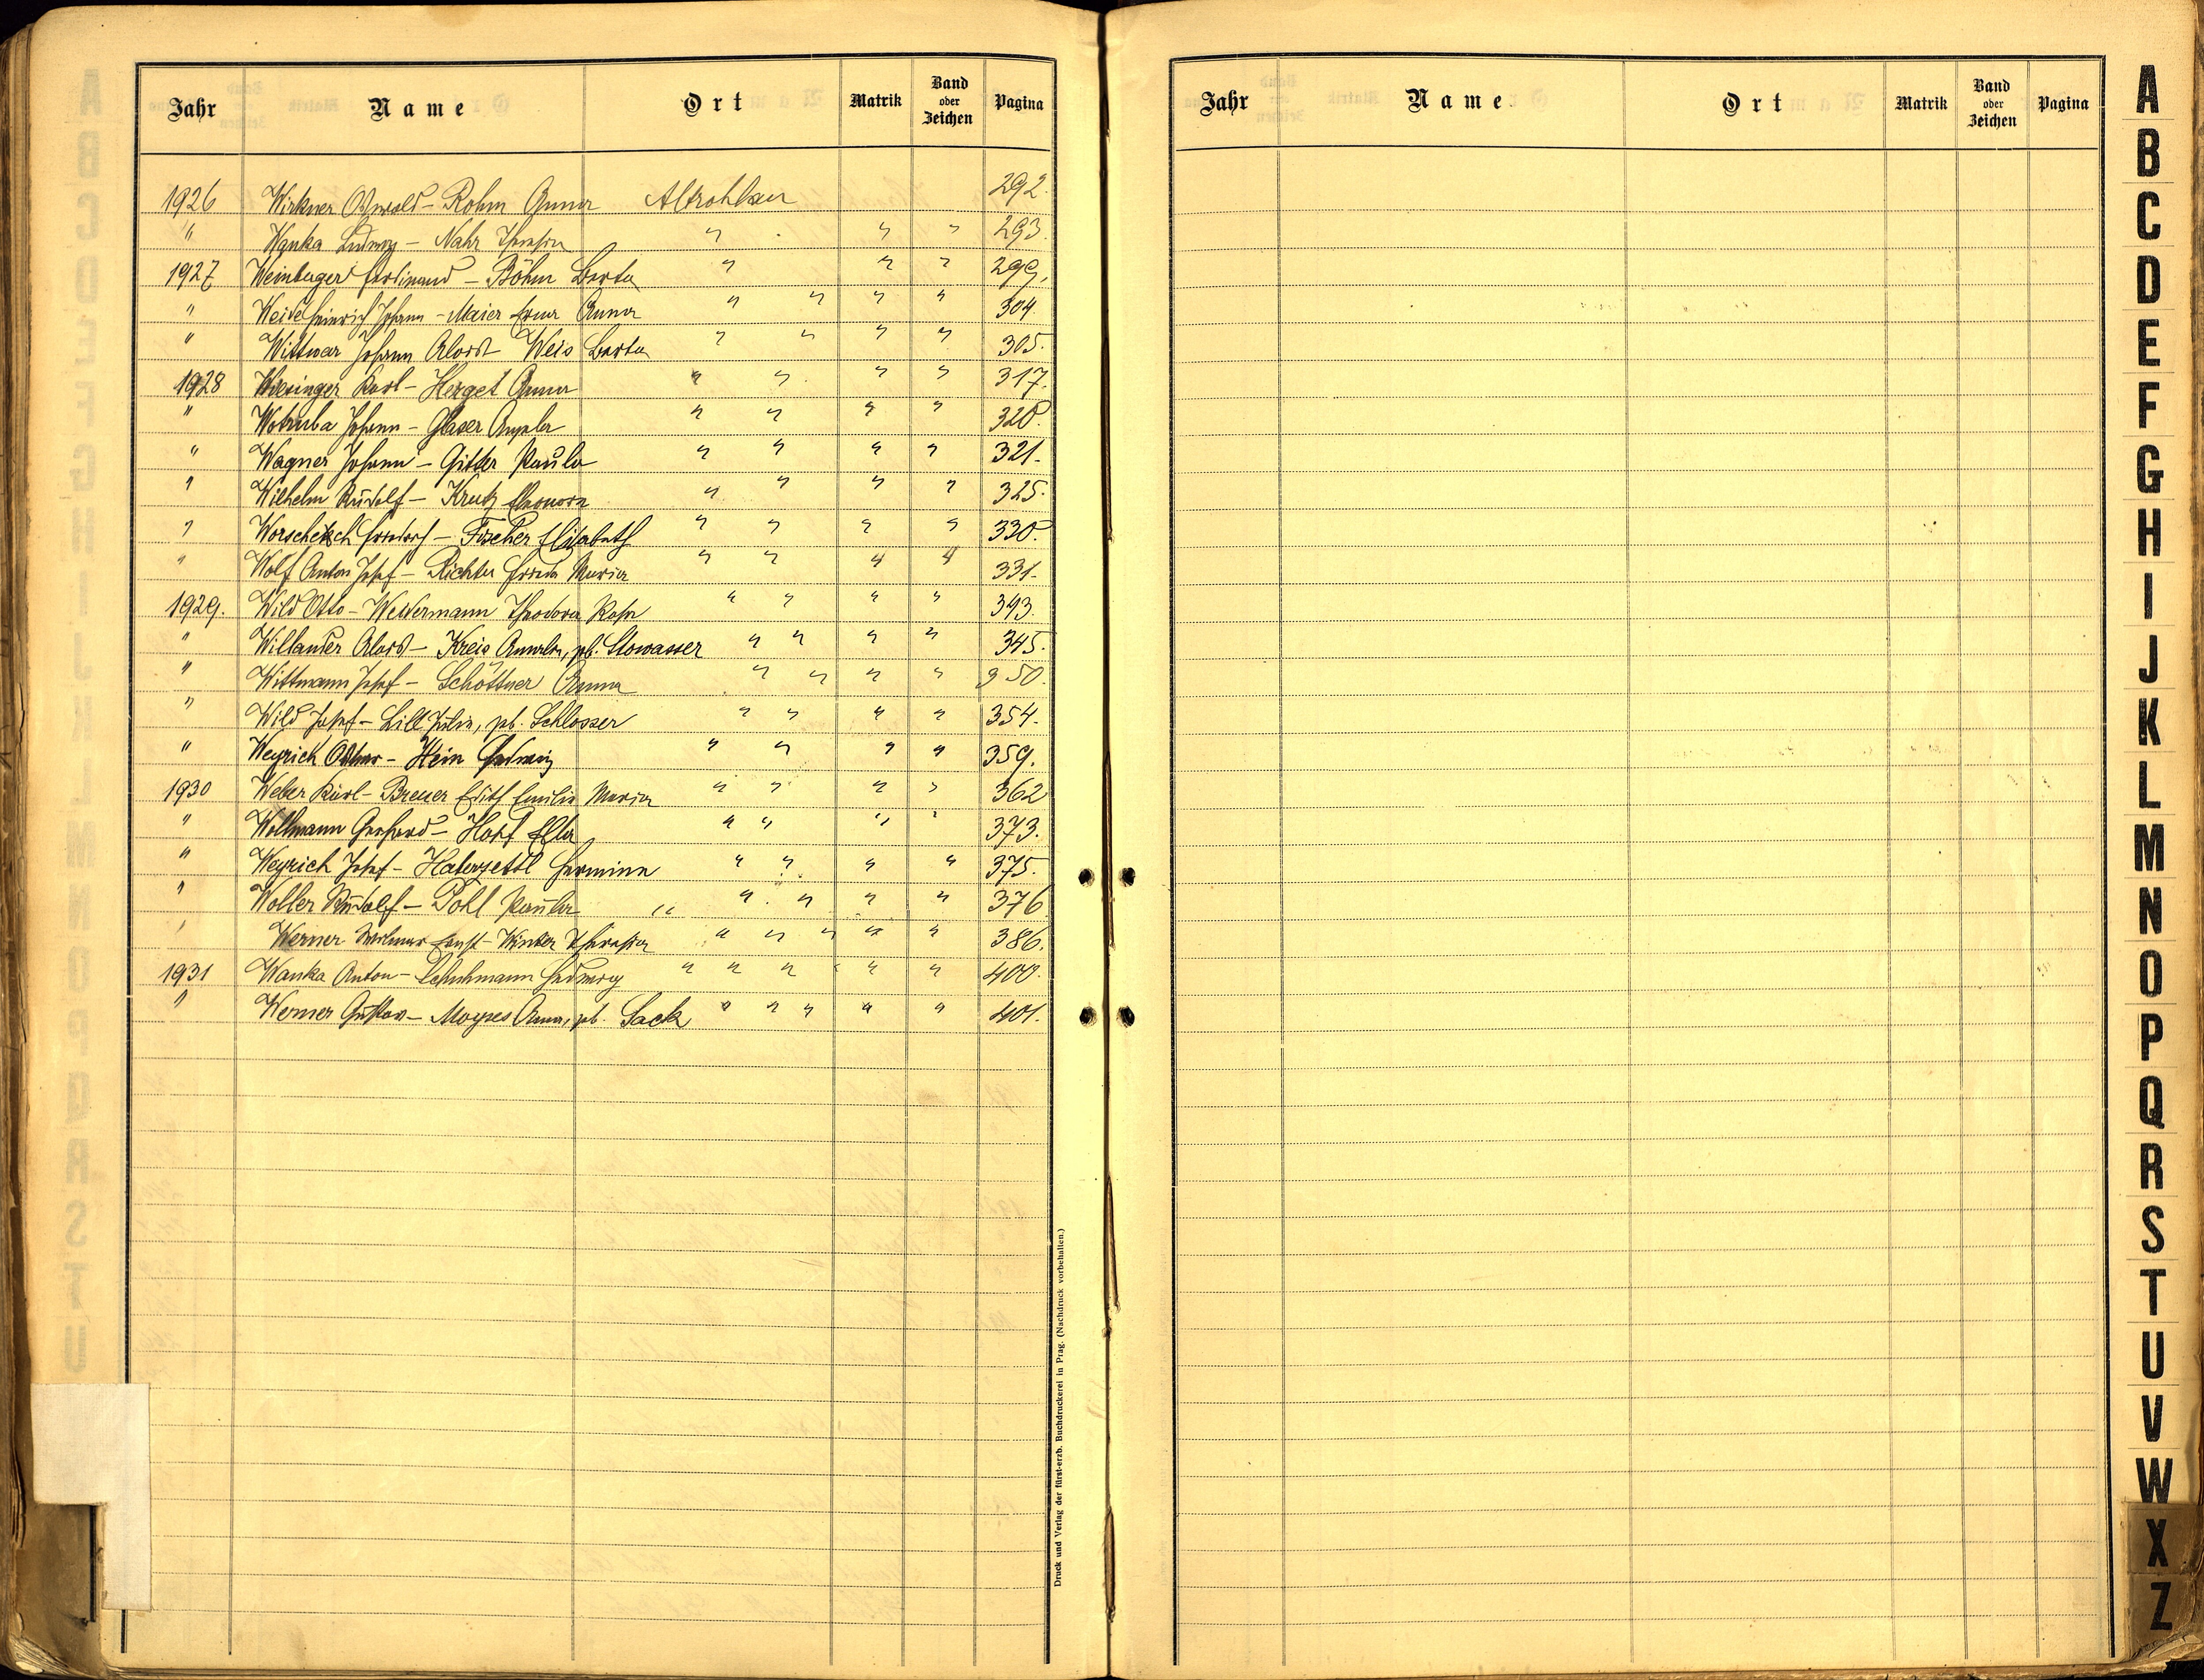 Jahr Name Ort Matrik Band oder Zeichen Pagina
1926 Wirkner Oswald – Rohm Anna Altrohlau 292.
" Wanka Ludwig – Nahr Theresia " " " 293.
1927 Weinberger Ferdinand – Böhm Berta " " " 299.
" Heinrich Johann – Maier Erna Anna " " " " 304.
" Wittwar Johann Alois – Weis Berta " " " " 305.
1928 Wiesinger Karl – Herget Anna " " " " 317.
" Wotruba Johann – Glaser Amalia " " " " 320.
" Wagner Johann – Gitter Paula " " " " 321.
" Wilhelm Rudolf – Krutz Eleonora " " " " 325.
" Worschetsch Friedrich – Fischer Elisabeth " " " " 330.
" Wolf Anton Josef – Richter Frieda Maria " " " " 331.
1929. Wild Otto – Westermann Theodora Rosa " " " " 343.
" Willander Alois – Kreis Amalia, pb. Stowasser " " " " 345.
" Wittmann Josef – Schöttner Anna " " " " 350.
" Wild Josef – Lill Julia, pb. Schlosser " " " " 354.
" Weyrich Othmar – Hein Hedwig " " " " 359.
1930 Weber Karl – Breuer Edith Emilie Maria " " " " 362
" Wollmann Gerhard – Hopf Ella " " " " 373.
" Weyrich Josef – Haberzettl Hermine " " " " 375.
" Woller Rudolf – Pohl Paula " " " " " 376
" Werner Ernst – Winter Theresia " " " " " 386.
1931 Wanka Anton – Schuhmann Hedwig " " " " " 400.
" Werner Gustav – Moyses Anna, pb. Sack " " " " " 401.
Druck und Verlag der fürst-erzb. Buchdruckerei in Prag. (Nachdruck vorbehalten.)
Jahr Name Ort Matrik Band oder Zeichen Pagina
A
B
C
D
E
F
G
H
I
J
K
L
M
N
O
P
Q
R
S
T
U
V
W
X
Z